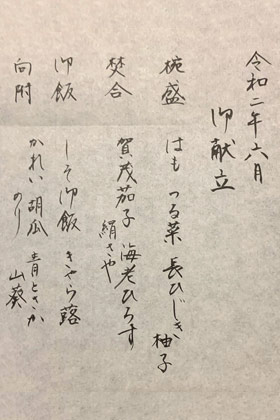 令和二年六月
御献立
椀盛 はも つる菜 長ひじき 柚子
焚合 賀茂茄子 海老ひろす
絹さや
御飯 しそ御飯 きゃら蕗
向附 かれい 胡瓜 青とさか
のり 山葵